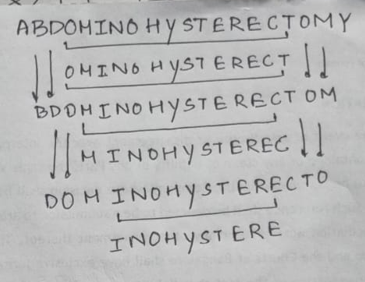 ABDOMINOHYSTERECTOMY
OMINOHYSTERECT
BDOMINOHYSTERECTOM
MINOHYSTEREC
DOMINOHYSTERECTO
INOHYSTERE